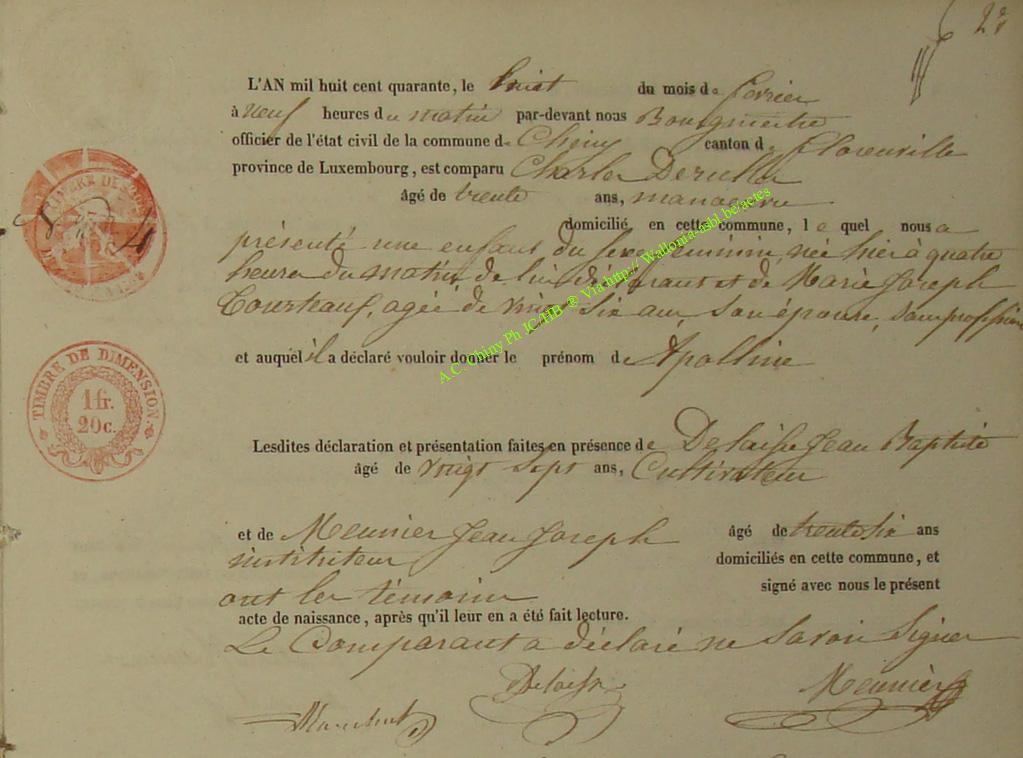 2e
L'AN mil huit cent quarante, le huit du mois de fevrier
à neuf heures du matin par-devant nous Bourgmestre
officier de l'état civil de la commune de Chiny canton de florenville
province de Luxembourg, est comparu Charles
âgé de trente ans, manoeuvre
domicilié en cette commune, le quel nous a
présenté une enfant du sexe feminin, née hier à quatre
heure du matin, de lui déclarant et de Marie Joseph
agée de vingt six ans, son épouse, sans profession
et auquel il a déclaré vouloir donner le prénom de Apolline
Lesdites déclaration et présentation faites en présence de Delaisse Jean Baptiste
âgé de vingt sept ans, Cultivateur
et de Meunier Jean Joseph âgé de trente six ans
instituteur domiciliés en cette commune, et
ont les témoins signé avec nous le présent
acte de naissance, après qu'il leur en a été fait lecture.
Le Comparant a déclaré ne Savoir Signer
Delaisse Meunier
TIMBRE DE DIMENSION.
1 fr.
20c.
A.C. Chiny Ph JC/HB ® Via http:// Wallonia-asbl.be/actes